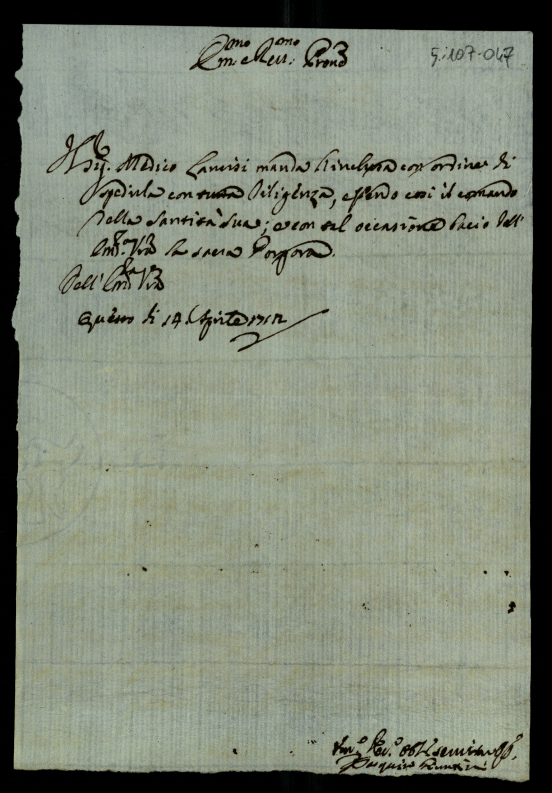 Em.mo e Rev.mo Prone
5:107-047
Il Sig. Medico Lancisi manda l'inclusa con ordine di
spedirla con tutta diligenza, essendo così il comando
della Santità Sua; e con tal occasione bacio dell'
Em.za V.ra la sacra Porpora.
Dell' Em.za V.ra
Questo dì 14 Aprile 1712
Um.o Dev.o Obb. servitore